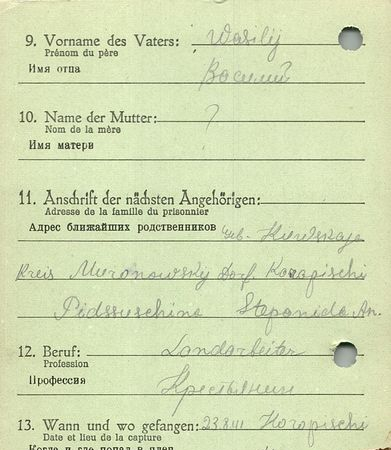 9. Vorname des Vaters: Wasilij
Prénom du père
Имя отца Василий
10. Name der Mutter: ?
Nom de la mère
Имя матери
11. Anschrift der nächsten Angehörigen:
Adresse de la famille du prisonnier
Адрес ближайших родственников Geb. Kurskaje
Kreis Muronowskij Dorf Korapischi
Pidssuschina Stepanida An.
12. Beruf: Landarbeiter
Profession
Профессия Крестьянин
13. Wann und wo gefangen: 23.8.41 Korapischi
Date et lieu de la capture
Когда и где попал в плен